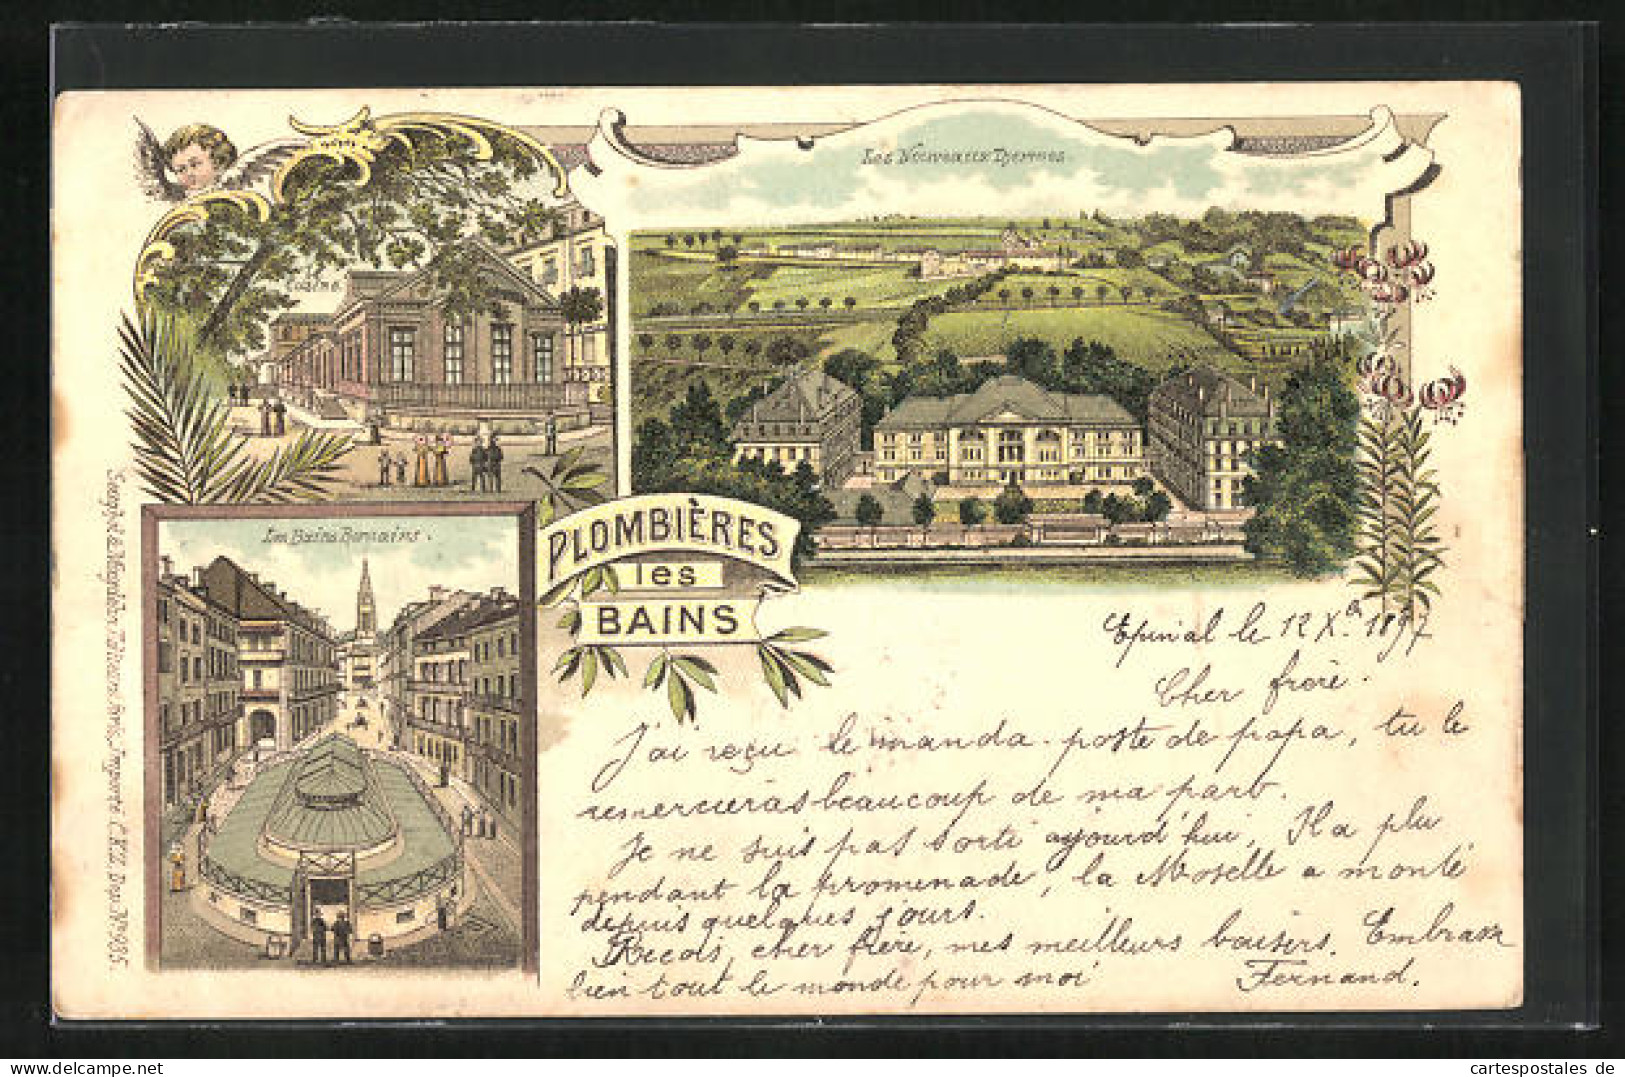 Les Nouveaux Thermes.
Casino.
Les Bains Romains.
PLOMBIÈRES
les
BAINS
Epinal le 12 Xbre 1897
Cher frère.
J'ai reçu le manda-poste de papa, tu le
remercieras beaucoup de ma part.
Je ne suis pas sorti ajourd'hui, Il a plu
pendant la promenade, la Moselle a monté
depuis quelques jours.
Recois, cher frère, mes meilleurs baisers. Embrasse
bien tout le monde pour moi
Fernand.
cartespostales de